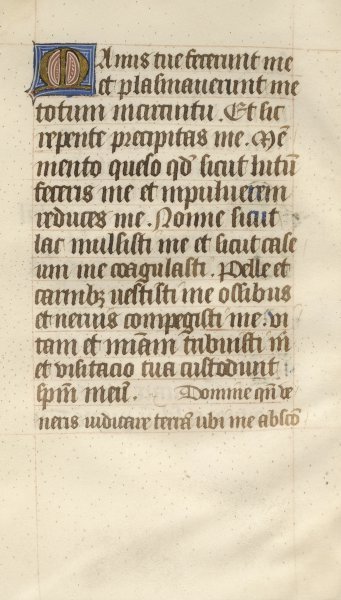 Manus tue fecerunt me
et plasmaverunt me
totum in circuitu. Et sic
repente precipitas me. Me᷒
mento queso qđ sicut lutū
feceris me et in pulverem
reduces me. Nonne sicut
lac mulsisti me et sicut case
um me coagulasti. Pelle et
carnibꝫ vestisti me ossibus
et nervis compegisti me. vi
tam et miām tribuisti m
et visitacio tua custodivit
spm̄ meū. Domine qn̄ ve
neris iudicare terrā ubi me abscō